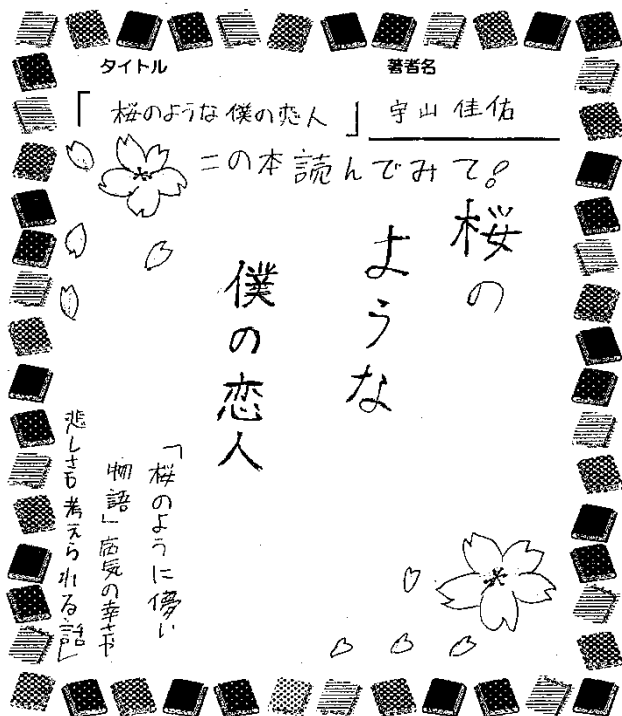 タイトル
著者名
「桜のような僕の恋人」 宇山佳佑
この本読んでみて!
桜の
ような
僕の恋人
「桜のように儚い
物語」病気の幸せや
悲しさも考えられる話」